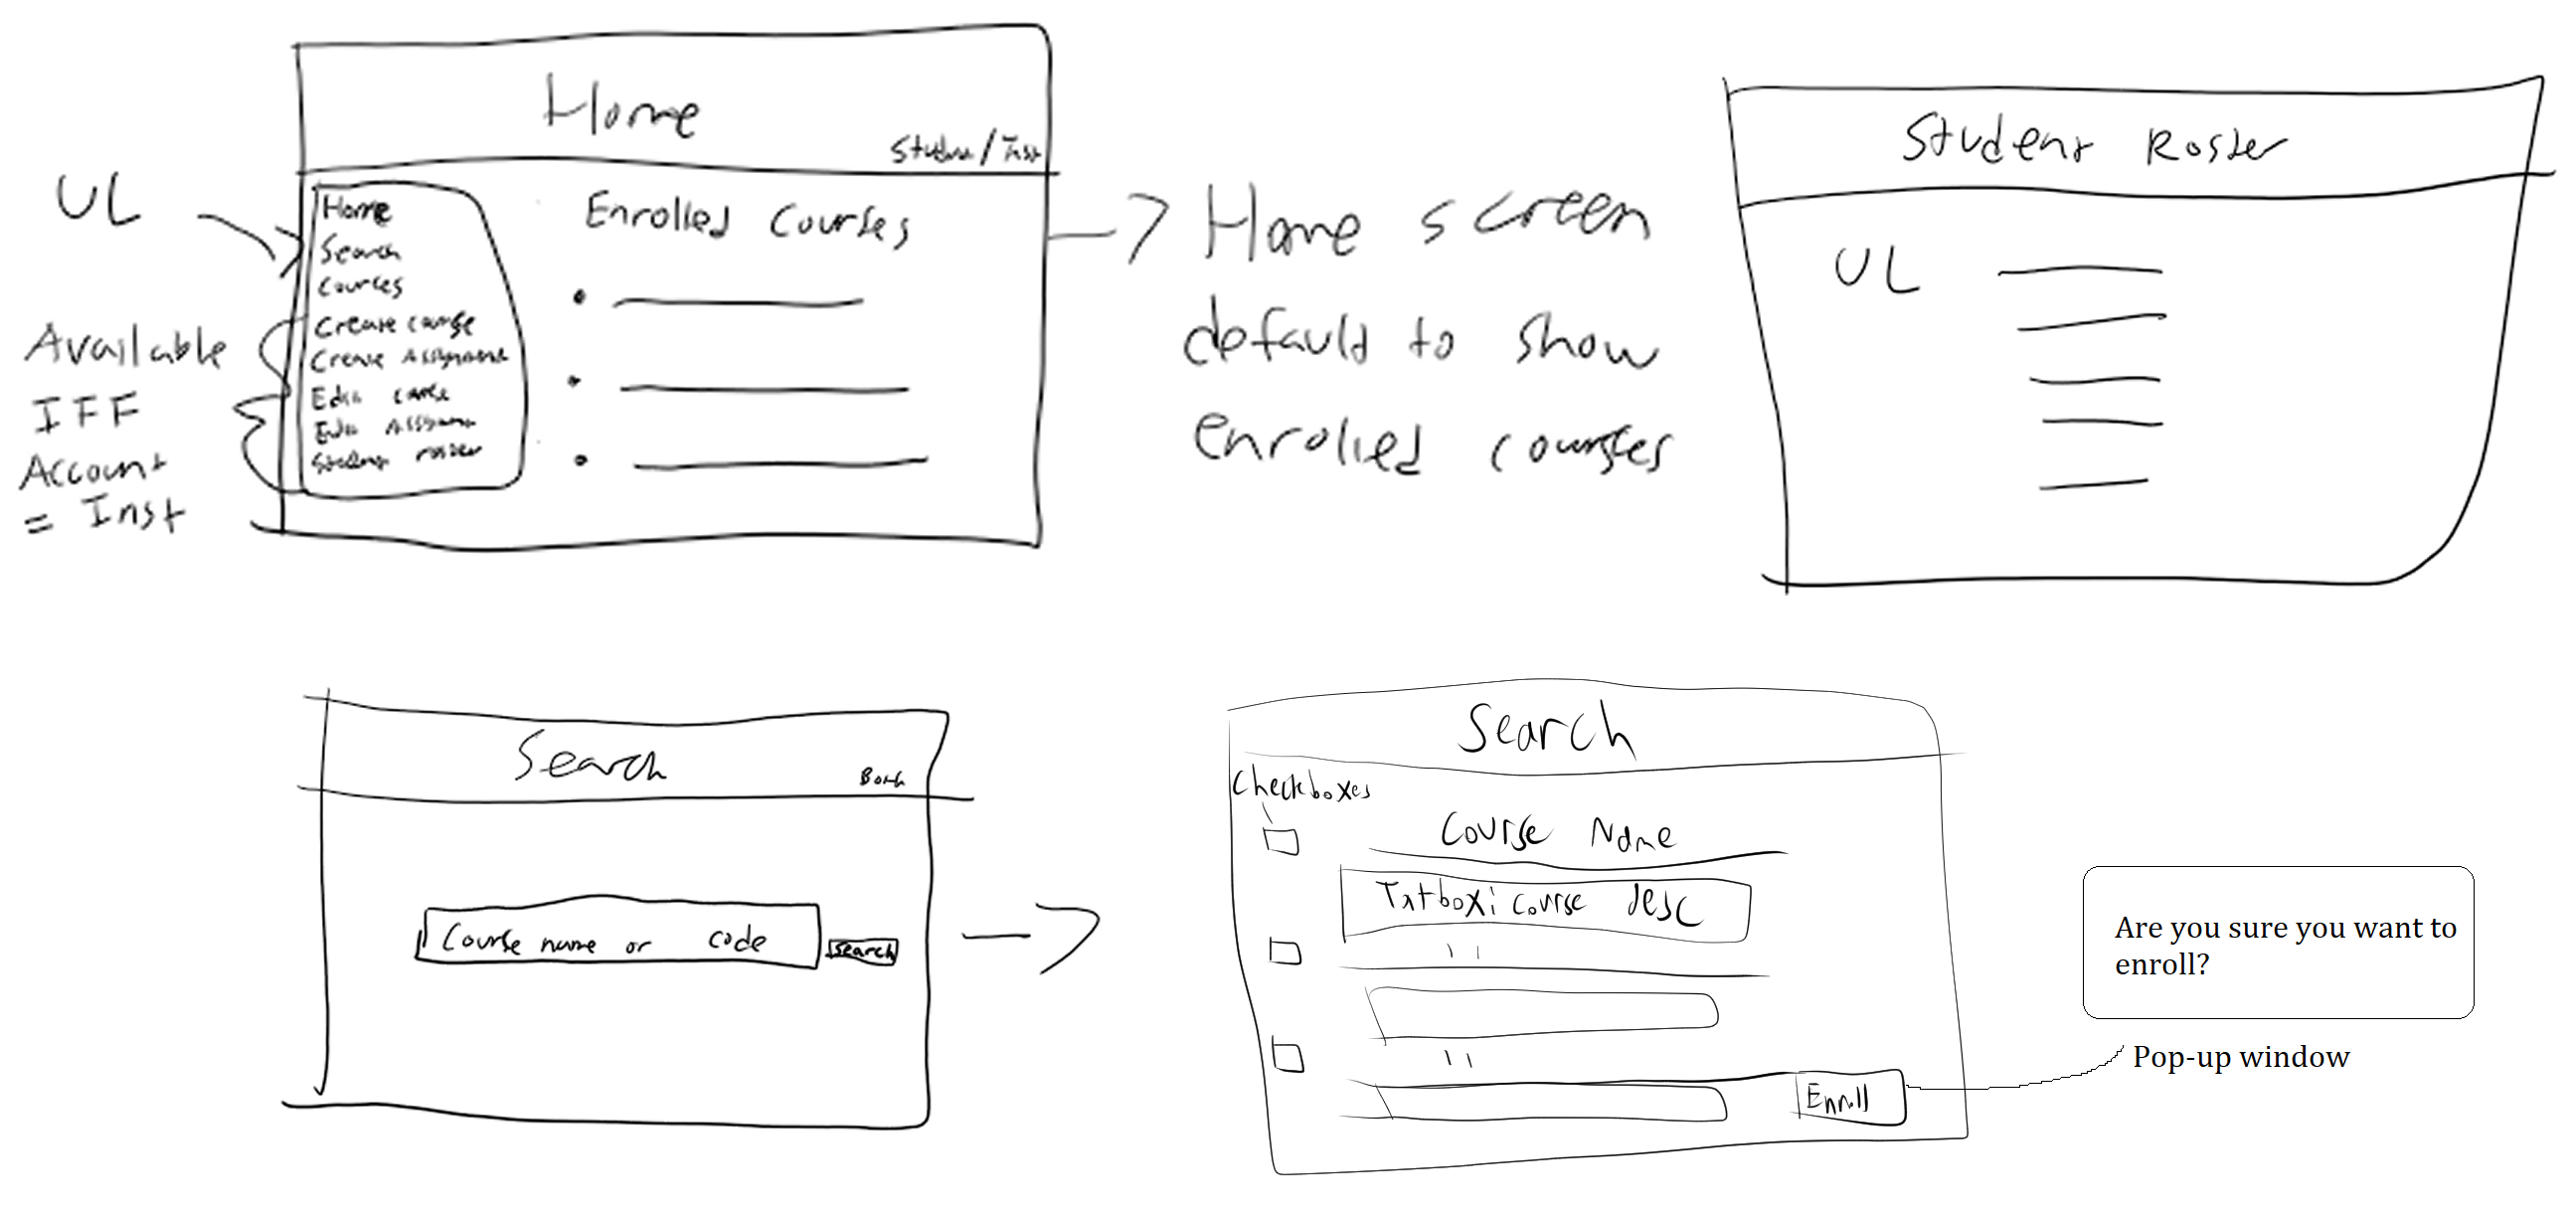 Home
Student/Inst
UL
Home
Search
Courses
Create course
Create Assignment
Edit course
Edit Assignment
Student roster
Available
IFF
Account
= Inst
Enrolled Courses
Home screen
default to show
enrolled courses
Student Roster
UL
Search
Both
Course name or code
Search
Search
Checkboxes
Course Name
Txtbox: course desc
" "
" "
Enroll
Are you sure you want to
enroll?
Pop-up window